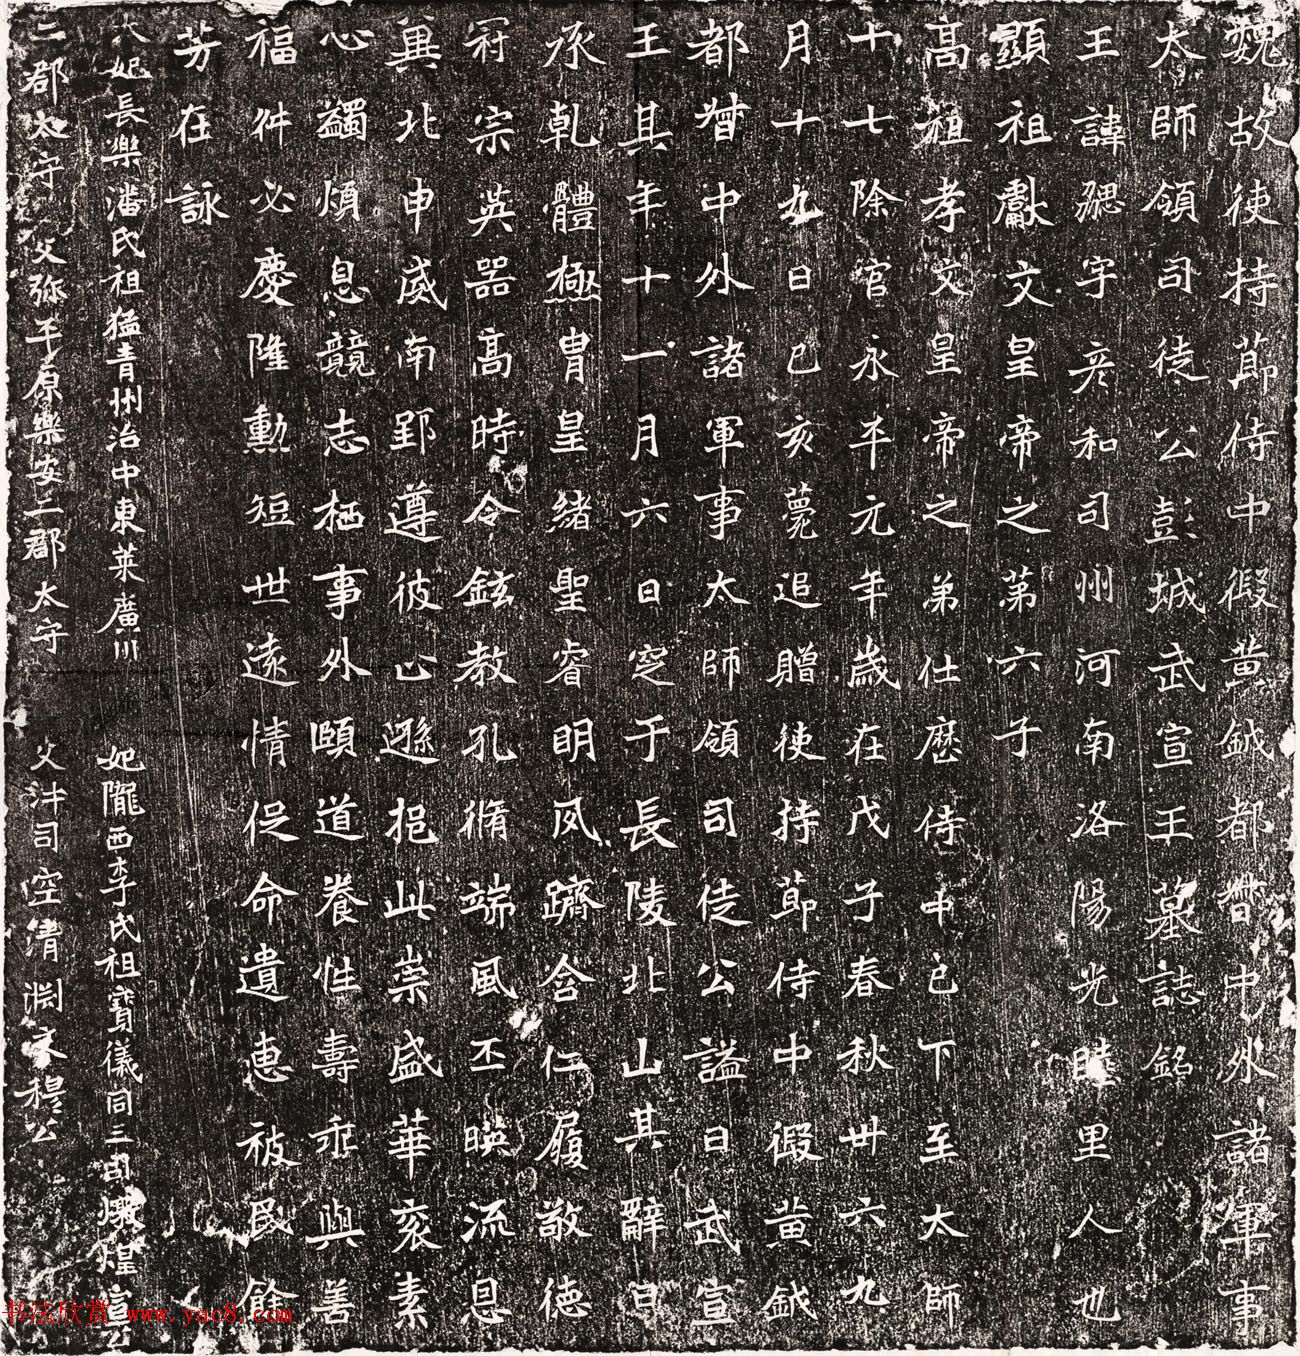 魏故使持節侍中假黃鉞都督中外諸軍事
太師領司徒公彭城武宣王墓誌銘
王諱勰字彥和司州河南洛陽光睦里人也
顯祖獻文皇帝之第六子
高祖孝文皇帝之弟仕歷侍中已下至太師
十七除官永平元年歲在戊子春秋卅六九
月十九日己亥薨追贈使持節侍中假黃鉞
都督中外諸軍事太師領司徒公謚曰武宣
王其年十一月六日窆于長陵北山其辭曰
承乾體極胄皇緒聖睿明夙躋含仁履敬德
冠宗英器高時令鉉教孔脩端風丕映流恩
冀北申威南郢遵彼止遜挹此崇盛華袞素
心蠲煩息競志栖事外頤道養性壽乖與善
福舛必慶隆勳短世遠情促命遺惠被民餘
芳在詠
太妃長樂潘氏祖猛青州治中東萊廣川
二郡太守 父弥平原樂安二郡太守
妃隴西李氏祖寶儀同三司燉煌宣公
父沖司空清淵文穆公
书法欣赏 www.yac8.com